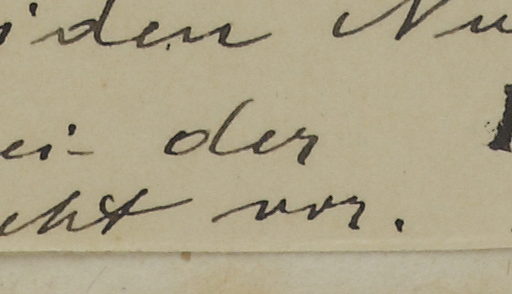 iden Nu
ei- der
cht vor.